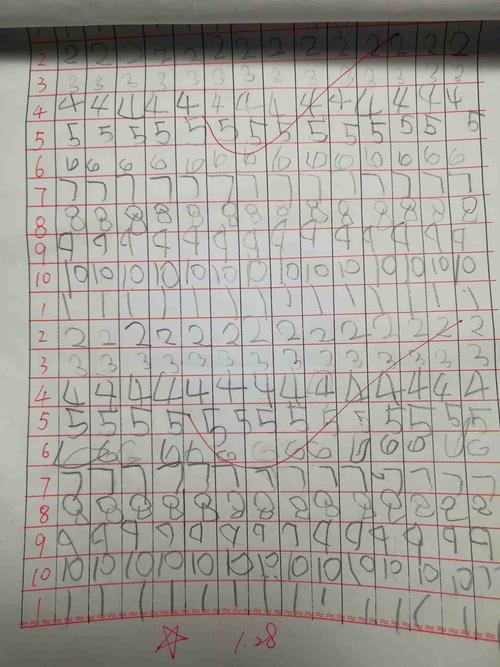 2 2 2 2 2 2 2 2 2 2 2 2 2 2 2
3 3 3 3 3 3 3 3 3 3 3 3 3 3 3
4 4 4 4 4 4 4 4 4 4 4 4 4 4 4
5 5 5 5 5 5 5 5 5 5 5 5 5 5 5
6 6 6 6 6 6 6 6 6 6 6 6 6 6 6
7 7 7 7 7 7 7 7 7 7 7 7 7 7 7
8 8 8 8 8 8 8 8 8 8 8 8 8 8 8
9 9 9 9 9 9 9 9 9 9 9 9 9 9 9
10 10 10 10 10 10 10 10 10 10 10 10 10 10 10
1 1 1 1 1 1 1 1 1 1 1 1 1 1 1
2 2 2 2 2 2 2 2 2 2 2 2 2 2 2
3 3 3 3 3 3 3 3 3 3 3 3 3 3 3
4 4 4 4 4 4 4 4 4 4 4 4 4 4 4
5 5 5 5 5 5 5 5 5 5 5 5 5 5 5
6 6 6 6 6 6 6 6 6 6 6 6 6 6 6
7 7 7 7 7 7 7 7 7 7 7 7 7 7 7
8 8 8 8 8 8 8 8 8 8 8 8 8 8 8
9 9 9 9 9 9 9 9 9 9 9 9 9 9 9
10 10 10 10 10 10 10 10 10 10 10 10 10 10 10
1 1 1 1 1 1 1 1 1 1 1 1 1 1 1
1.28